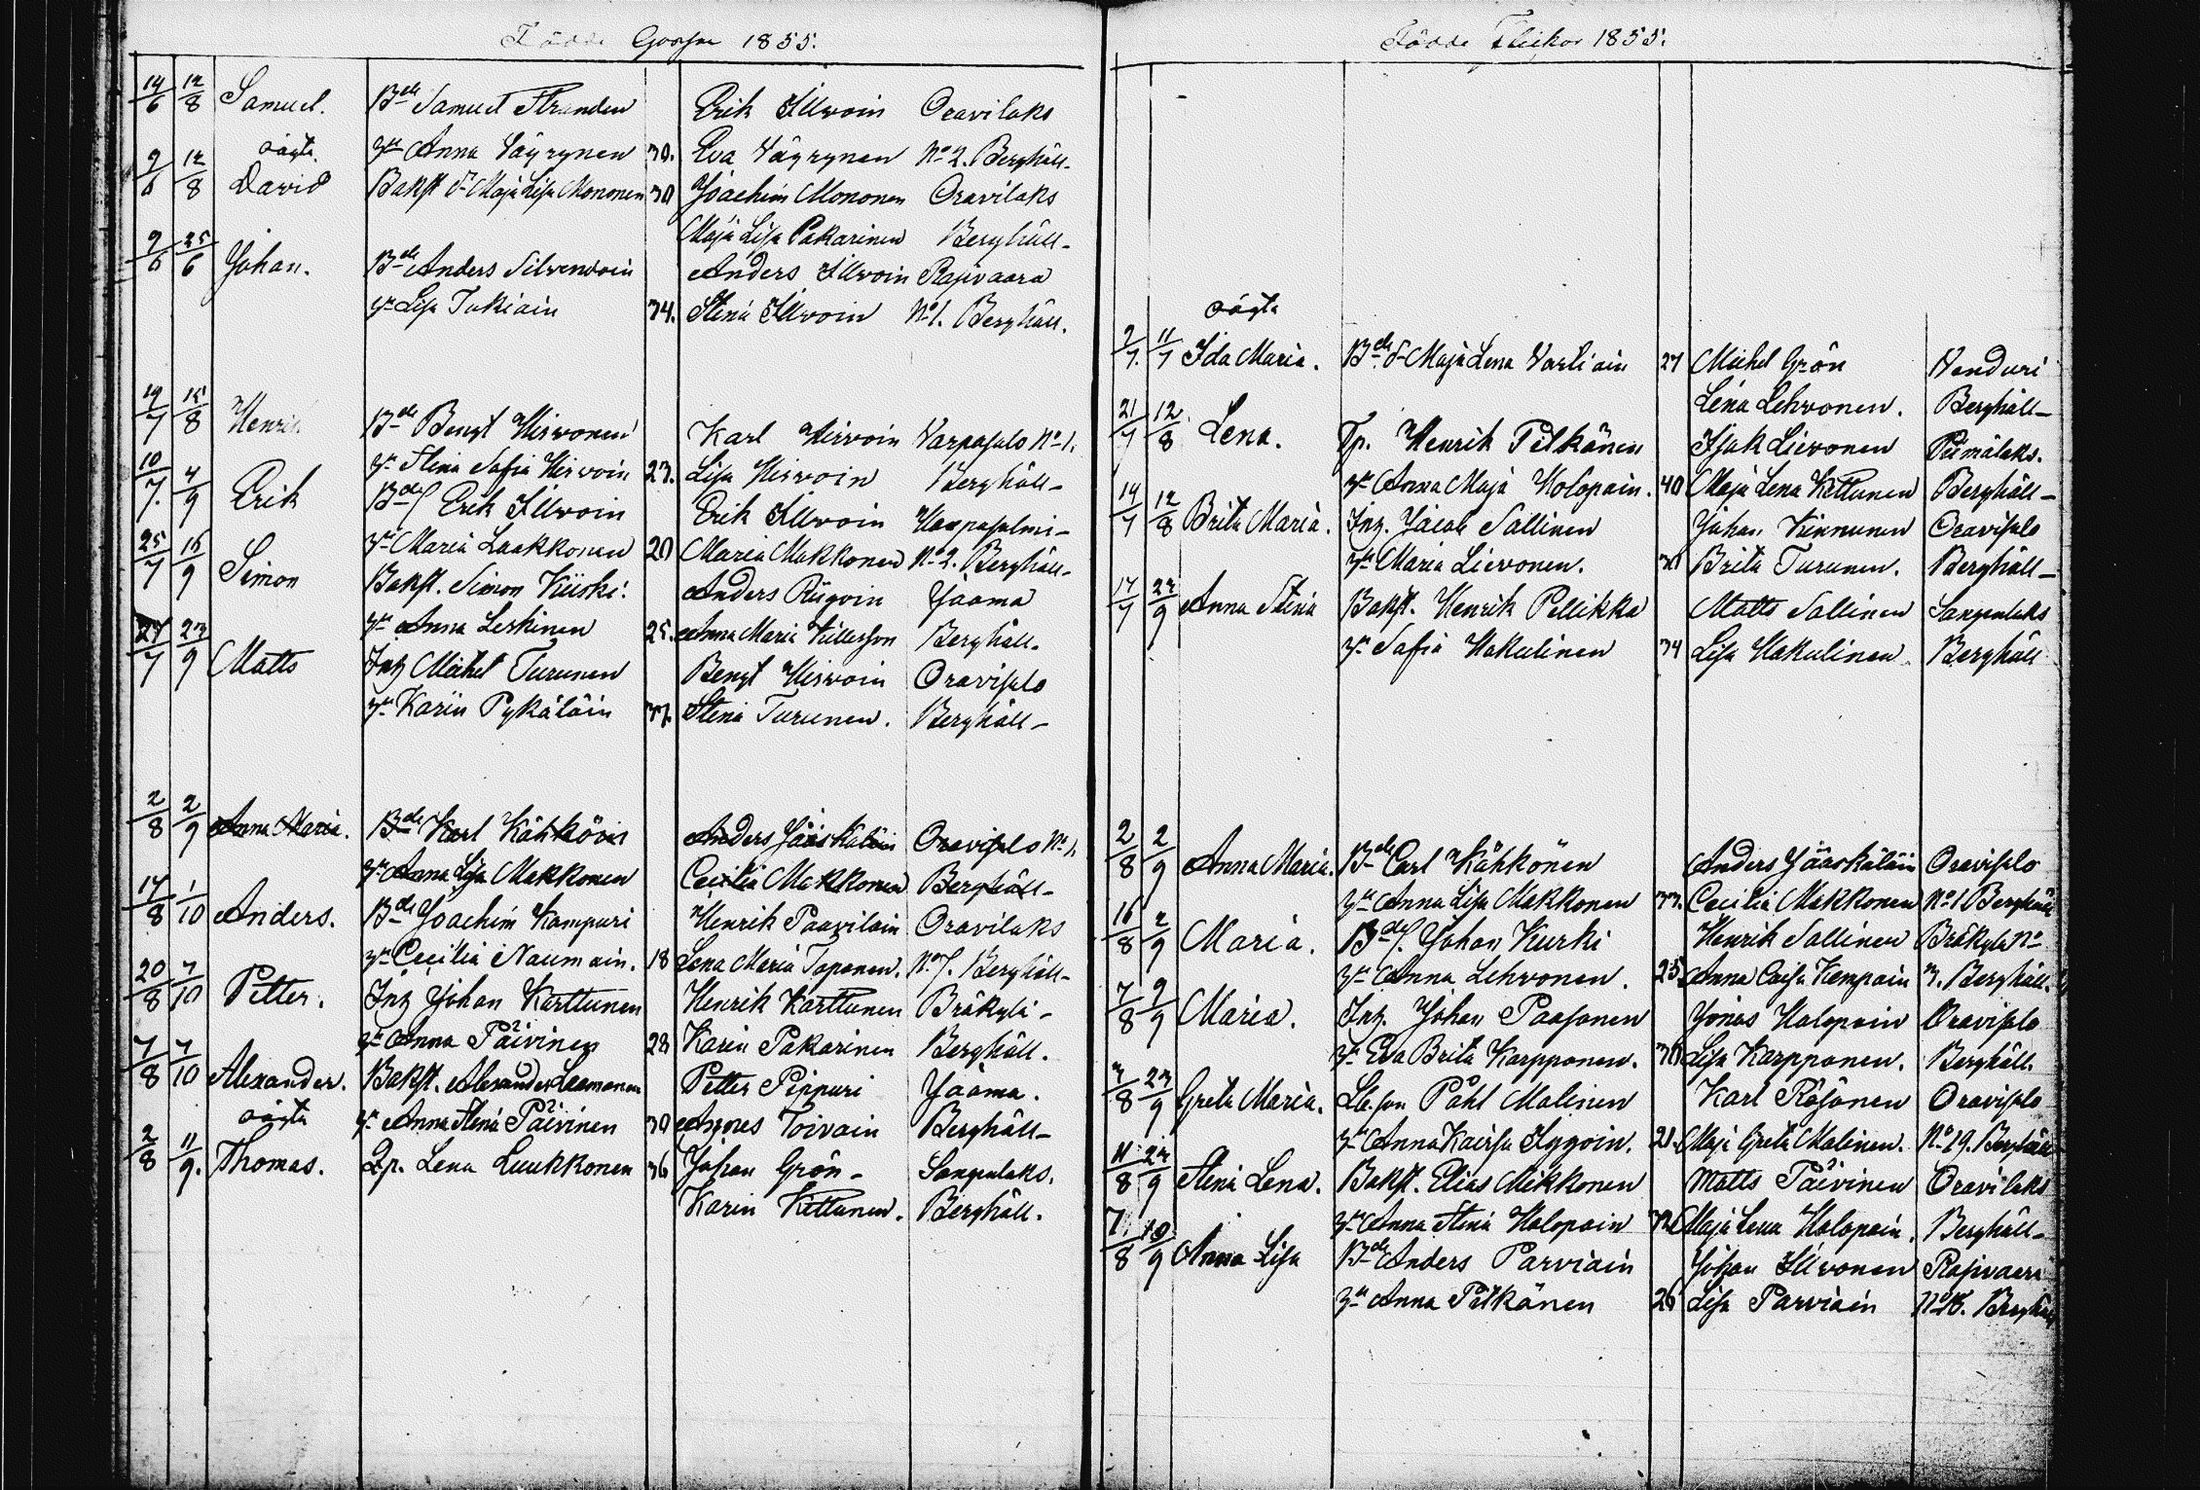 Födde Gossar 1855.
14/6 12/8 Samuel. Bde Samuel Stranden Erik Illvoin Oravilaks
oägta. Hu Anna Väyrynen 30. Eva Väyrynen No 2. Berghäll-
9/6 12/8 David Bakst dr Maja Lisa Mononen 30 Joachim Mononen Oravilaks
Maja Lisa Pakarinen Berghäll-
9/6 25/6 Johan. Bde Anders Silvenvoin Anders Illvoin Rajivaara
Hu Lisa Tukiain 34. Stina Illvoin No 1. Berghäll.
19/7 15/8 Henrik Bde Bengt Hirvonen Karl Hirvoin Varpasalo No 1.
Hu Stina Safia Hirvoin 23. Lisa Hirvoin Berghäll-
10/7. 4/9 Erik Bdes Erik Illvoin Erik Illvoin Haapasalmi-
Hu Maria Laakkonen 20 Maria Makkonen No 2. Berghäll-
25/7 16/9 Simon Bakst. Simon Kiiski. Anders Riigoin Jaama
Hu Anna Leskinen 25. Anna Maria Berghäll.
27/7 23/9 Matts Inh Michel Turunen Bengt Hirvoin Oravisalo
Hu Karin Pykäläin 37. Stina Turunen. Berghäll-
2/8 2/9 Anna Maria. Bde Karl Kähköin Anders Jääskäläin Oravisalo No 1.
Hu Anna Lisa Makkonen Cecilia Makkonen Berghäll-
14/8 1/10 Anders. Bde Joachim Kampuri Henrik Paavilain Oravilaks
Hu Cecilia Naumain. 18 Lena Maria Toponen. No 7. Berghäll-
20/8 7/10 Petter. Inh Johan Karttunen Henrik Karttunen Bräkylä-
Hu Anna Päivinen 28 Karin Pakarinen Berghäll.
7/8 7/10 Alexander. Bakst. Alexander Laamanen Petter Pippuri Jaama.
oägta Hu Anna Stina Päivinen 30 Agnes Toivain Berghäll-
2/8 11/9. Thomas. Qp. Lena Luukkonen 36 Johan Grön- Sangenlaks.
Karin Kettunen. Berghäll.
Födde Flickor 1855.
oägta
9/7. 11/7 Ida Maria. Bde dr Maja Lena Vartiain 27 Michel Grön Venduri
Lena Lehvonen. Berghäll-
21/7 12/8 Lena. Tp. Henrik Pitkänen Isak Lievonen Piimälaks.
Hu Anna Maja Holopain. 40 Maja Lena Kettunen Berghäll-
14/7 12/8 Brita Maria. Inh. Jacob Sallinen Johan Kinnunen Oravisalo
Hu Maria Lievonen. 30 Brita Turunen. Berghäll-
17/7 23/9 Anna Stina Bakst. Henrik Pellikka Matts Sallinen Sangenlaks
Hu Safia Hakulinen 34 Lisa Hakulinen Berghäll
2/8 2/9 Anna Maria. Bde Carl Kähkönen Anders Jääskäläin Oravisalo
Hu Anna Lisa Makkonen 33. Cecilia Makkonen No 1 Berghäll
16/8 2/9 Maria. Bdes. Johan Kurki Henrik Sallinen Bräkylä No
Hu Anna Lehvonen. 25. Anna Caisa Kempain 3. Berghäll.
7/8 9/9 Maria. Inh. Johan Paasonen Jonas Holopain Oravisalo
Hu Eva Brita Karpponen. 30 Lisa Karpponen. Berghäll.
3/8 23/9 Greta Maria. Ldb.son Påhl Malinen Karl Räsänen Oravisalo
Hu Anna Kaisa Iggoin. 21. Maja Greta Malinen. No 19. Berghäll
11/8 23/9 Stina Lena. Bakst. Elias Mikkonen Matts Päivinen Oravilaks
Hu Anna Stina Holopain 32 Maja Lena Holopain. Berghäll-
7/8 10/9 Anna Lisa Bde Anders Parviain Johan Illvonen Rajivaara
Hu Anna Pitkänen 26 Lisa Parviain No 16. Berghäll